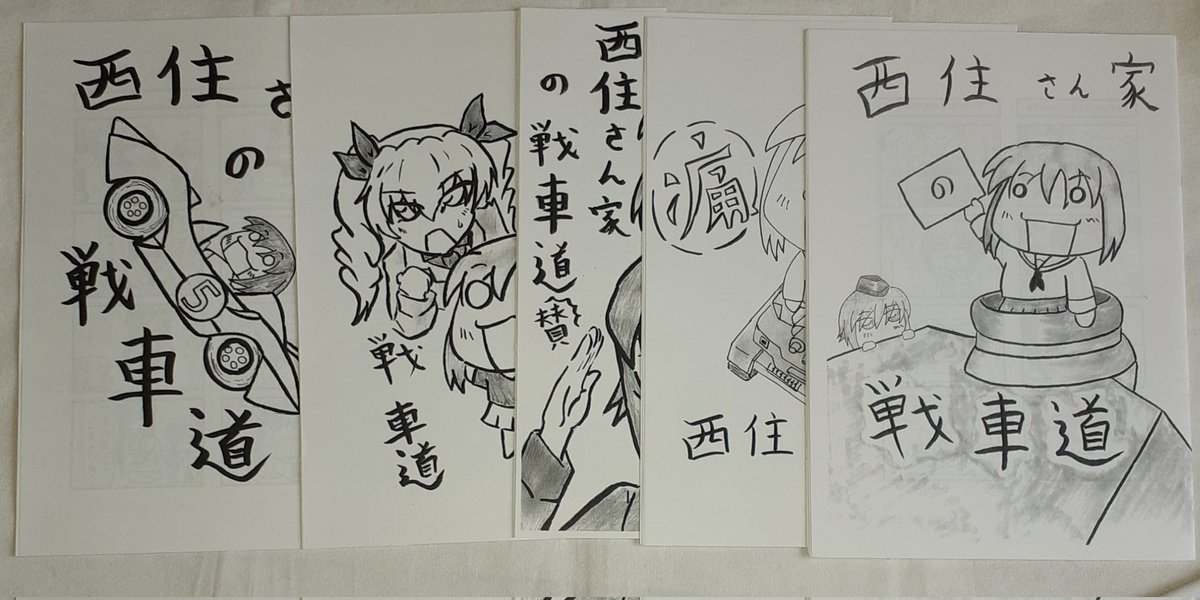 西住さ
の
5
戦
車
道
戦
車
道
西住さん家
の戦車道
賛
痛
西住
西住さん家
の
戦車道